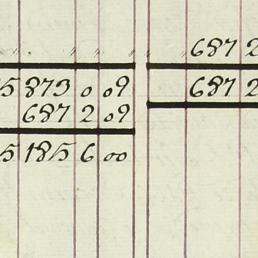 687 2
5 873 0 09 687 2
687 2 09
5 185 6 00